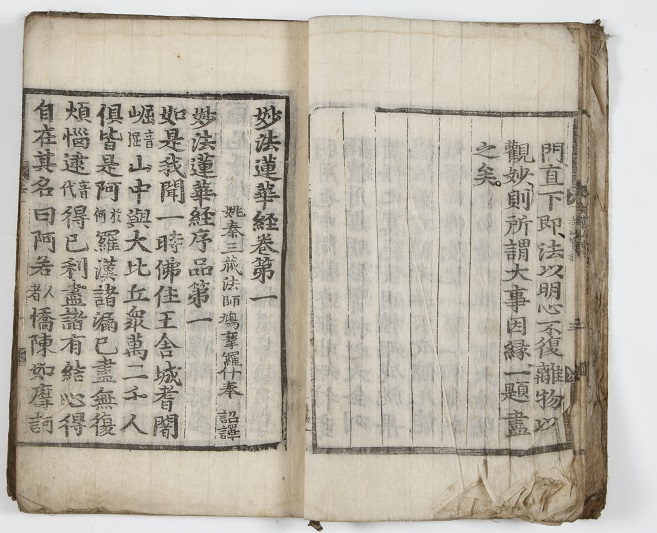 門直下即法以明心不復離物以
觀妙則所謂大事因緣一題盡
之矣。
妙法蓮華經卷第一
姚秦三藏法師鳩摩羅什奉 詔譯
妙法蓮華經序品第一
如是我聞一時佛住王舍城耆闍
崛音山中與大比丘衆萬二千人
俱皆是阿於何羅漢諸漏已盡無復
煩惱逮音代得已利盡諸有結心得
自在其名曰阿若人者憍陳如摩訶